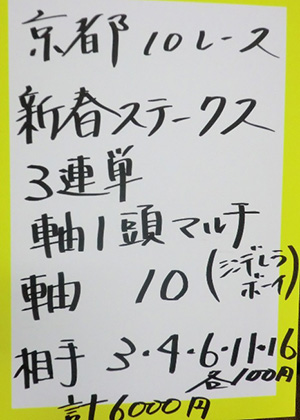 京都10レース
新春ステークス
3連単
軸1頭マルチ
軸 10 (シンデレラボーイ)
相手 3・4・6・11・16
各100円
計6000円